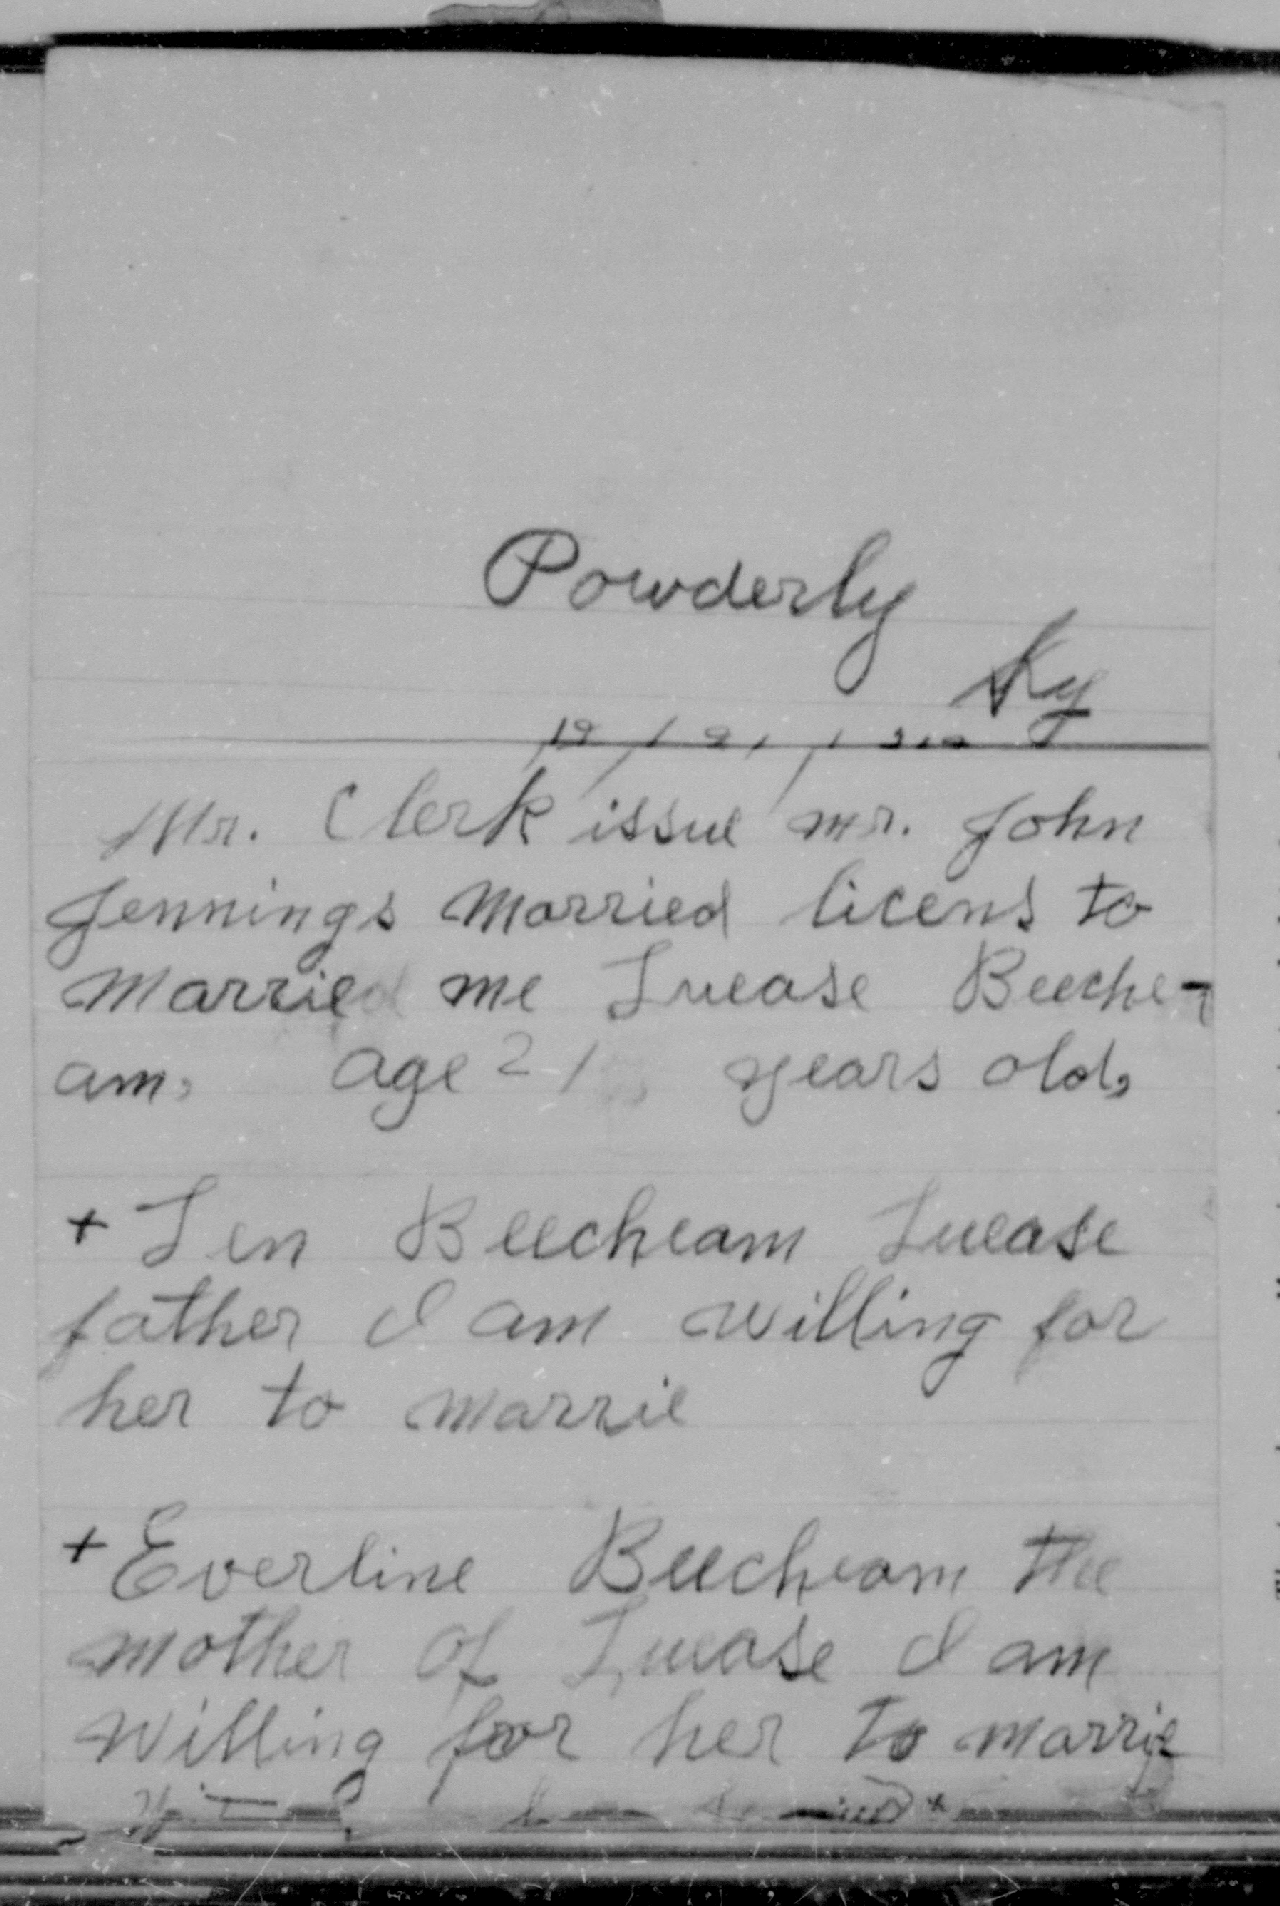 Powderly
Ky
Mr. Clerk issue mr. John
Jennings Married licens to
Married me Luease Beeche-
am, age 21 years old,
+ Len Beecheam Luease
father I am willing for
her to marrie
+ Everline Beecheam the
mother of Luease I am
Willing for her to marrie